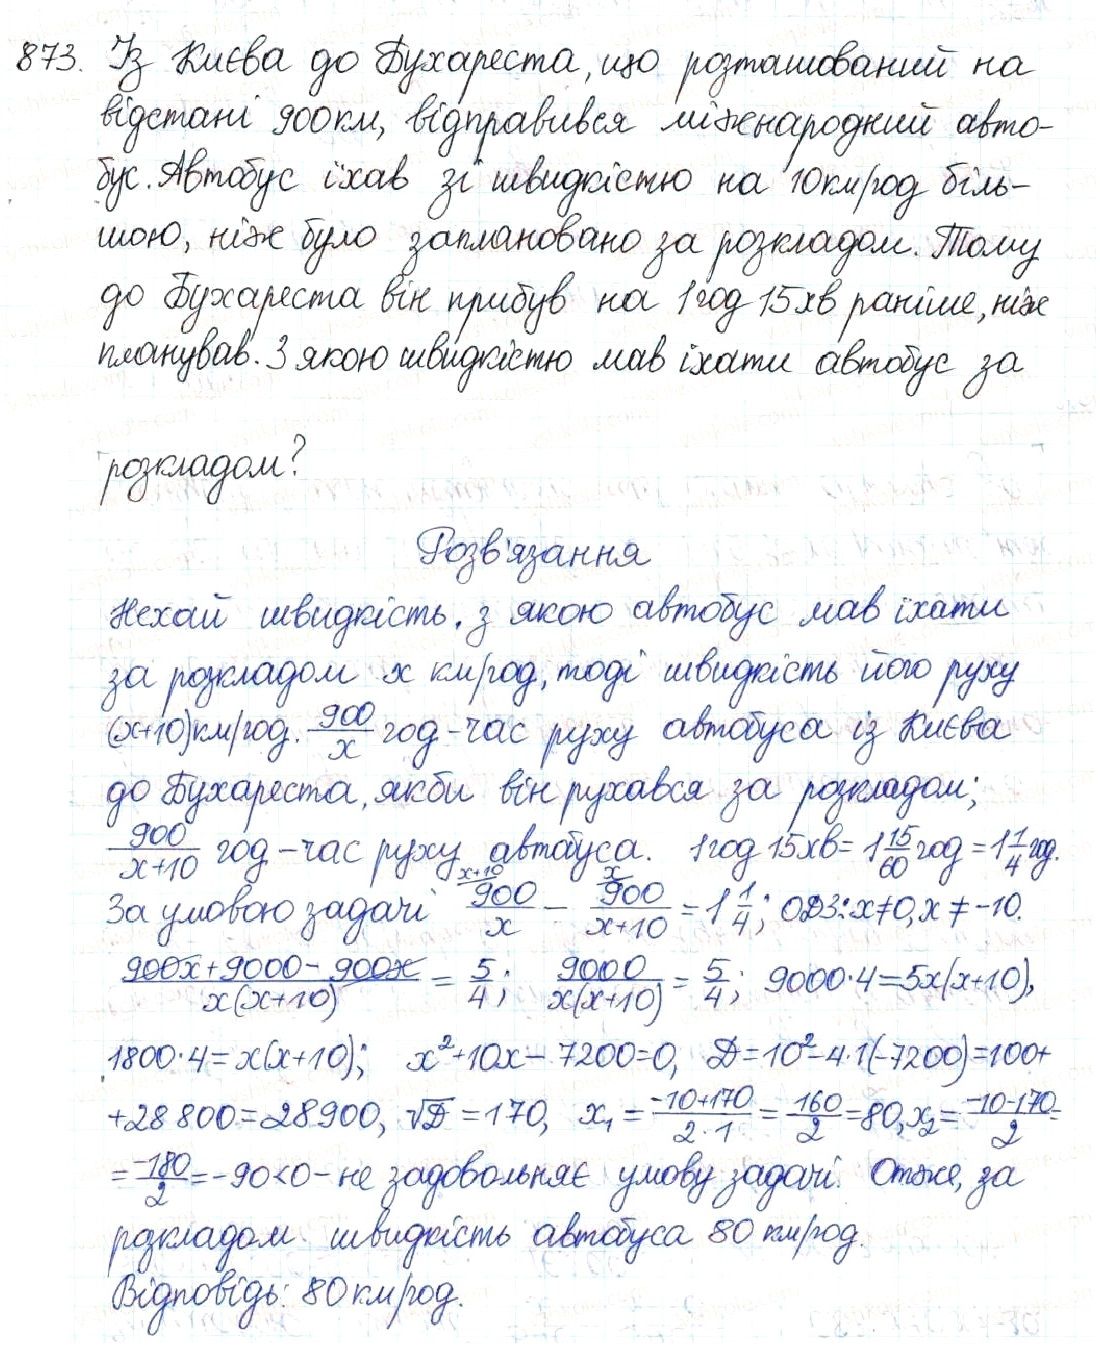 873. Із Києва до Бухареста, що розташований на
відстані 900км, відправився міжнародний авто-
бус. Автобус їхав зі швидкістю на 10км/год біль-
шою, ніж було заплановано за розкладом. Тому
до Бухареста він прибув на 1год 15хв раніше, ніж
планував. З якою швидкістю мав їхати автобус за
розкладом?
Розв'язання
Нехай швидкість, з якою автобус мав їхати
за розкладом x км/год, тоді швидкість його руху
(x+10)км/год. 900/x год - час руху автобуса із Києва
до Бухареста, якби він рухався за розкладом;
900/(x+10) год - час руху автобуса. 1год 15хв = 1 15/60 год = 1 1/4 год.
За умовою задачі 900/x (x+10) - 900/(x+10) (x) = 1 1/4; ОДЗ: x≠0, x≠-10.
(900x+9000-900x)/(x(x+10)) = 5/4; 9000/(x(x+10)) = 5/4; 9000·4=5x(x+10),
1800·4=x(x+10); x²+10x-7200=0, D=10²-4·1(-7200)=100+
+28800=28900, √D=170, x₁=(-10+170)/(2·1)=160/2=80, x₂=(-10-170)/2=
=-180/2=-90<0- не задовольняє умову задачі. Отже, за
розкладом швидкість автобуса 80 км/год.
Відповідь: 80км/год.